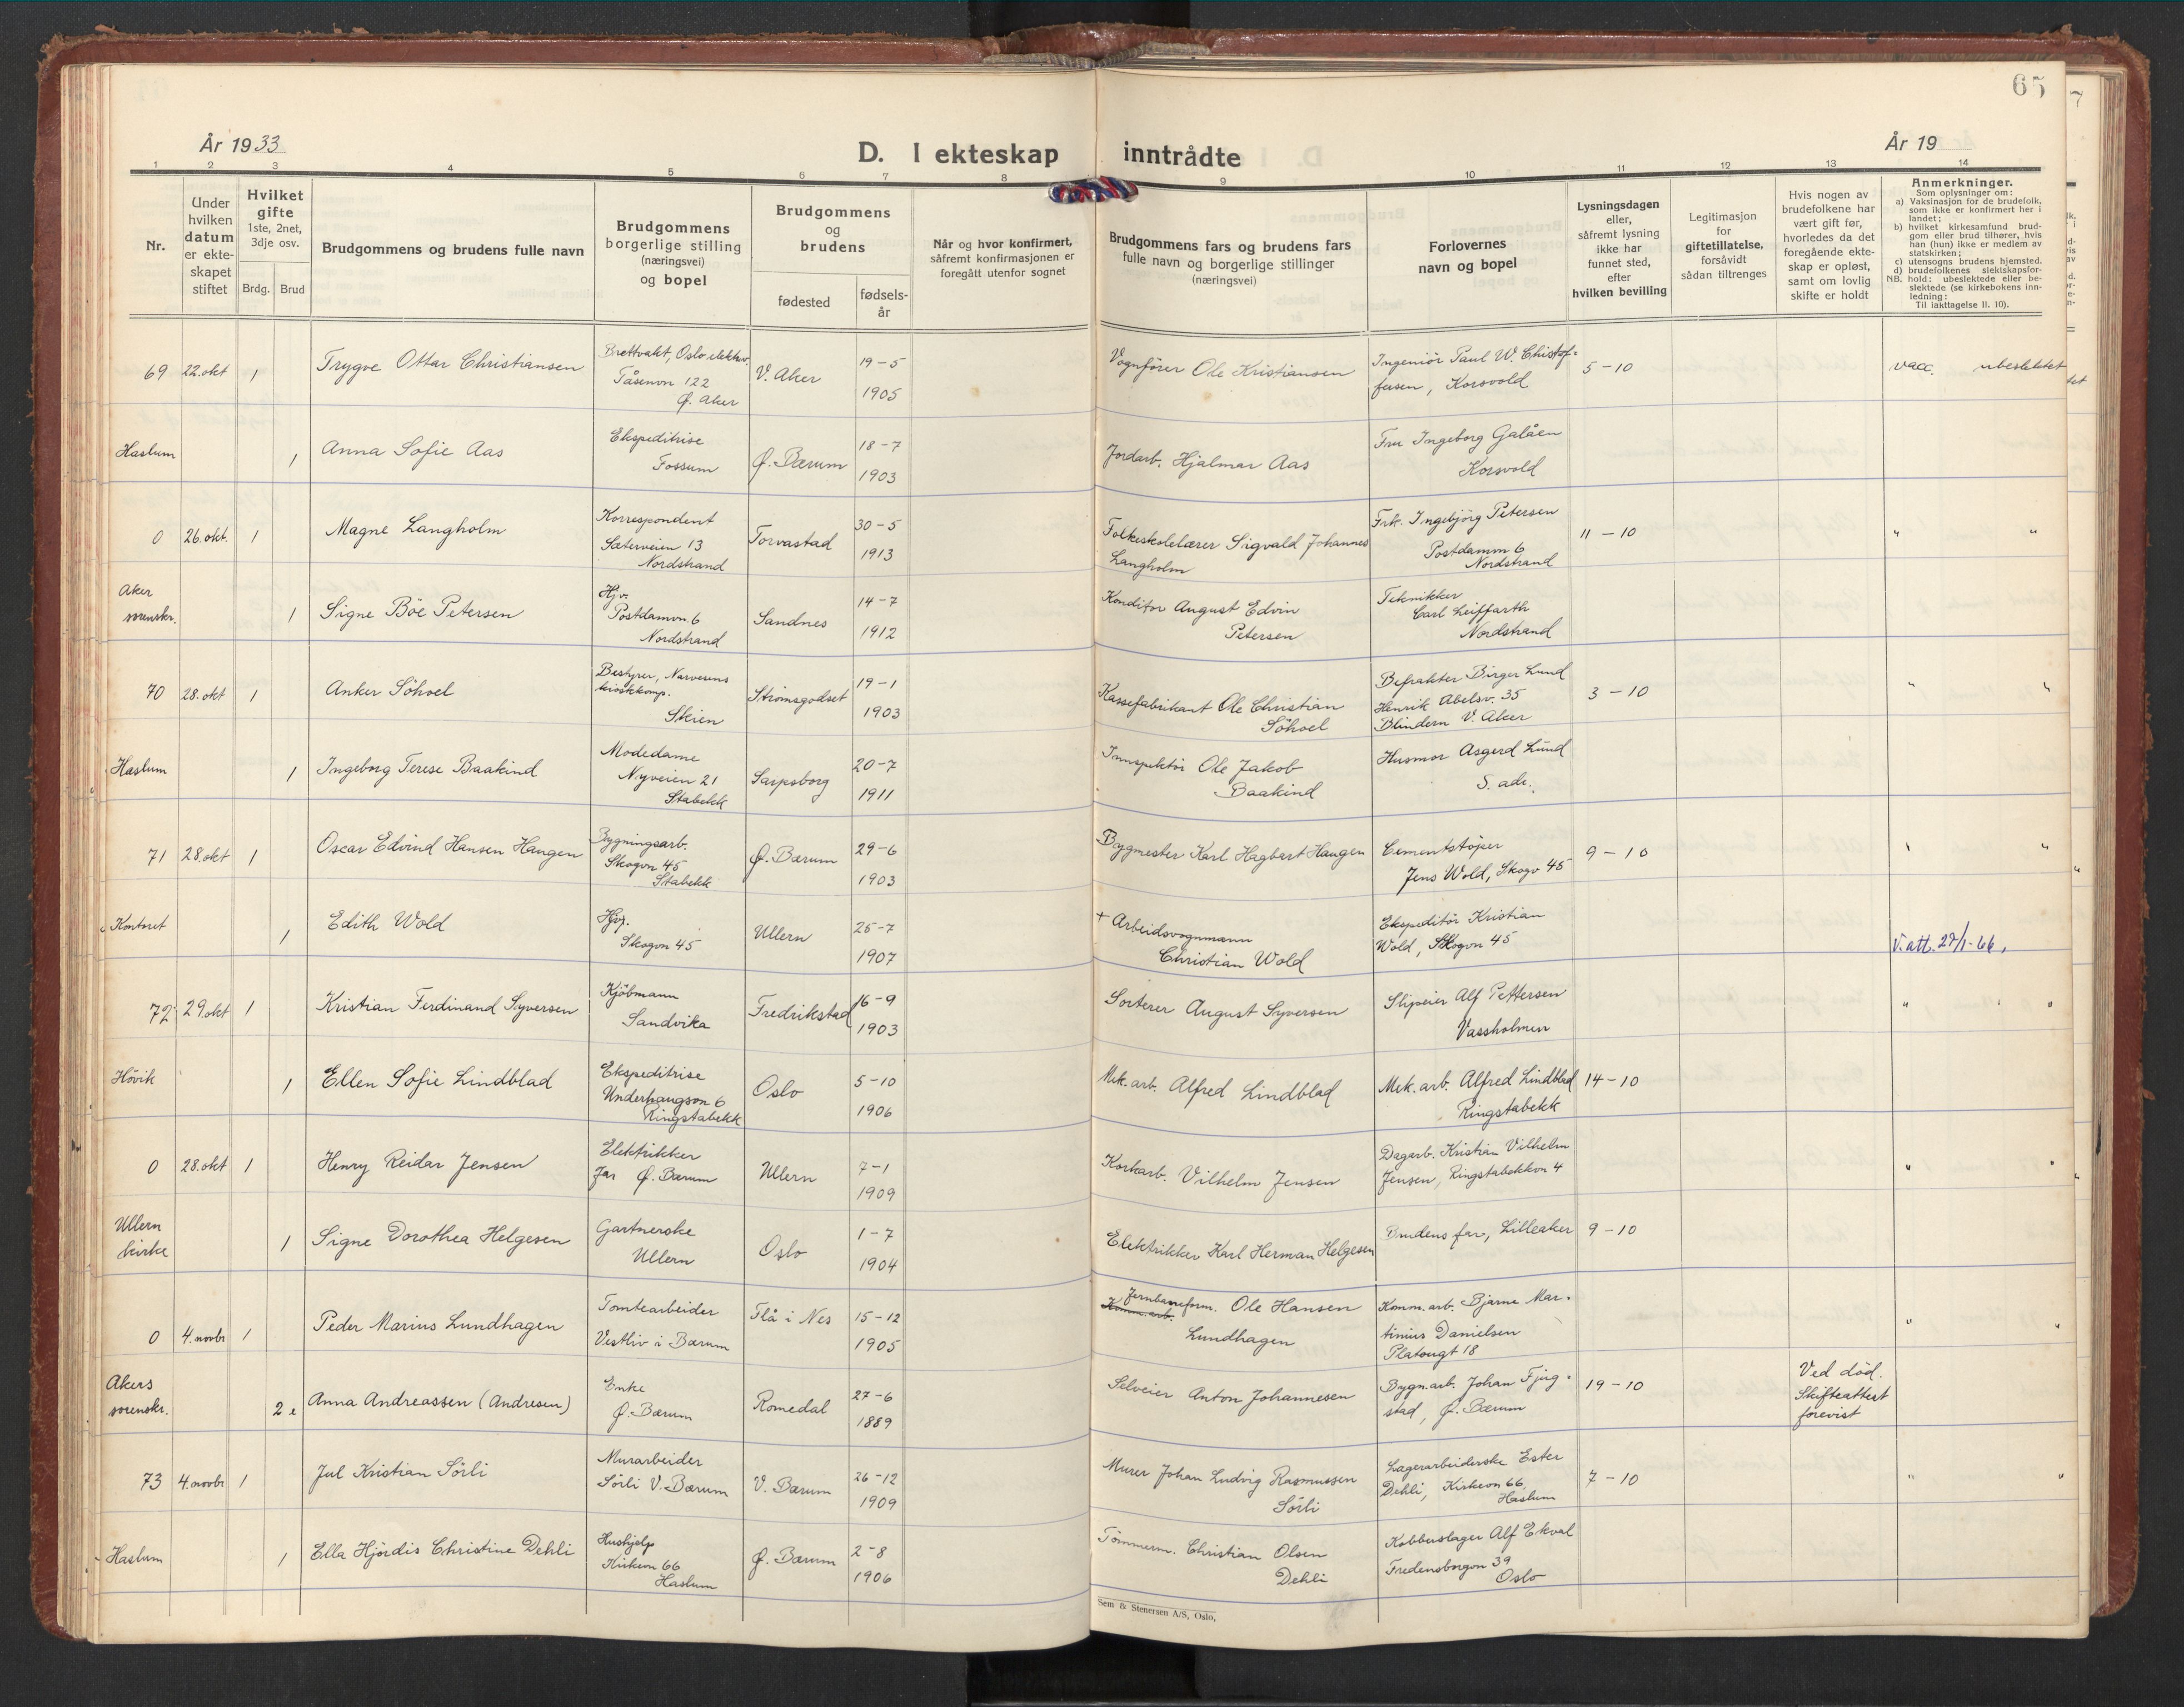 65
År 1933
D. I ekteskap inntrådte
År 19
1 2 3 4 5 6 7 8 9 10 11 12 13 14
Nr.
Under hvilken datum er ekteskapet stiftet
Hvilket gifte 1ste, 2net, 3dje osv.
Brdg. Brud
Brudgommens og brudens fulle navn
Brudgommens borgerlige stilling (næringsvei) og bopel
Brudgommens og brudens
fødested
fødselsår
Når og hvor konfirmert, såfremt konfirmasjonen er foregått utenfor sognet
Brudgommens fars og brudens fars fulle navn og borgerlige stillinger (næringsvei)
Forlovernes navn og bopel
Lysningsdagen eller, såfremt lysning ikke har funnet sted, efter hvilken bevilling
Legitimasjon for giftetillatelse, forsåvidt sådan tiltrenges
Hvis nogen av brudefolkene har vært gift før, hvorledes da det foregående ekteskap er opløst, samt om lovlig skifte er holdt
Anmerkninger.
Som oplysninger om:
a) Vaksinasjon for de brudefolk, som ikke er konfirmert her i landet;
b) hvilket kirkesamfund brudgom eller brud tilhører, hvis han (hun) ikke er medlem av statskirken;
c) utensogns brudens hjemsted.
d) brudefolkenes slektskapsforhold: ubeslektede eller beslektede (se kirkebokens innledning:
NB. Til iakttagelse II. 10).
69 22. okt 1 Trygve Ottar Christiansen Brettvakt, Oslo elektv. Tåsenvn 122 Ø. Aker V. Aker 19-5 1905 Vognfører Ole Kristiansen Ingeniør Paul W. Christoffersen, Korsvold 5-10 vacc. ubeslektet
Haslum 1 Anna Sofie Aas Ekspeditrise Fossum Ø. Bærum 18-7 1903 Jordarb. Hjalmar Aas Fru Ingeborg Galåen Korsvold
0 26. okt. 1 Magne Langholm Korrespondent Sæterveien 13 Nordstrand Torvastad 30-5 1913 Folkeskolelærer Sigvald Johannes Langholm Frk. Ingebjørg Petersen Postdamm 6 Nordstrand 11-10 " "
Aker sorenskr. 1 Signe Böe Petersen Hjv. Postdamvn. 6 Nordstrand Sandnes 14-7 1912 Konditor August Edvin Petersen Teknikker Carl Leiffarth Nordstrand
70 28. okt 1 Anker Söhoel Bestyrer, Narvesens kioskkomp. Skien Strømsgodset 19-1 1903 Kassefabrikant Ole Christian Söhoel Befrakter Birger Lund Henrik Abelsv. 35 Blindern V. Aker 3-10 " "
Haslum 1 Ingeborg Terese Baakind Modedame Nyveien 21 Stabekk Sarpsborg 20-7 1911 Innspektör Ole Jakob Baakind Husmor Asgerd Lund S. adr.
71 28. okt 1 Oscar Edvind Hansen Haugen Bygningsarb. Skogvn 45 Stabekk Ø. Bærum 29-6 1903 Bygmester Karl Hagbart Haugen Cementstøper Jens Wold, Skogv 45 9-10 " "
Kontoret 1 Edith Wold Hjv. Skogvn 45 Ullern 25-7 1907 + Arbeidsvognmann Christian Wold Ekspeditör Kristian Wold, Skogvn 45 V. att. 27/1-66.
72 29. okt 1 Kristian Ferdinand Syversen Kjöbmann Sandvika Fredrikstad 16-9 1903 Sorterer August Syversen Slipeier Alf Pettersen Vassholmen " "
Hövik 1 Ellen Sofie Lindblad Ekspeditrise Underhaugsvn 6 Ringstabekk Oslo 5-10 1906 Mek. arb. Alfred Lindblad Mek. arb. Alfred Lindblad Ringstabekk 14-10
0 28. okt 1 Henry Reidar Jensen Elektrikker Jar Ø. Bærum Ullern 7-1 1909 Korkarb. Vilhelm Jensen Dagarb. Kristian Vilhelm Jensen, Ringstabekkvn 4 " "
Ullern kirke 1 Signe Dorothea Helgesen Gartnerske Ullern Oslo 1-7 1904 Elektrikker Karl Herman Helgesen Brudens far, Lilleaker 9-10
0 4. novbr 1 Peder Marius Lundhagen Tomtearbeider Vestliv i Bærum Flå i Nes 15-12 1905 Komm. arb. Jernbaneform. Ole Hansen Lundhagen Komm. arb. Bjarne Martinius Danielsen Platougt 18 " "
Akers sorenskr. 2 Anna Andreassen (Andresen) Enke Ø. Bærum Romedal 27-6 1889 Selveier Anton Johannesen Bygn. arb. Johan Fjugstad, Ø. Bærum 19-10 Ved död. Skifteattest forevist
73 4. novbr 1 Jul Kristian Sörli Murarbeider Sörli V. Bærum V. Bærum 26-12 1909 Murer Johan Ludvig Rasmussen Sörli Lagerarbeiderske Ester Dehli, Kirkevn 66, Haslum 7-10 " "
Haslum 1 Ella Hjördis Christine Dehli Hushjelp Kirkevn 66 Haslum Ø. Bærum 2-8 1906 Tömmerm. Christian Olsen Dehli Kobberslager Alf Ekval Fredensborgvn 39 Oslo
Sem & Stenersen A/S, Oslo.